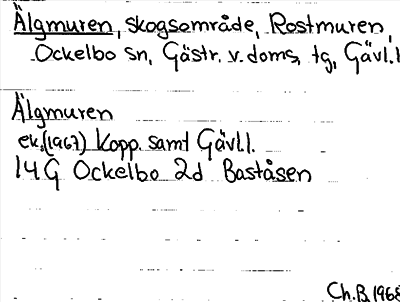 Älgmuren, skogsområde, Rostmuren,
Ockelbo sn, Gästr. v. doms, tg, Gävl.l
Älgmuren
ek.(1967) Kopp. samt Gävl.l.
14 G Ockelbo 2d Baståsen
Ch.B. 1968